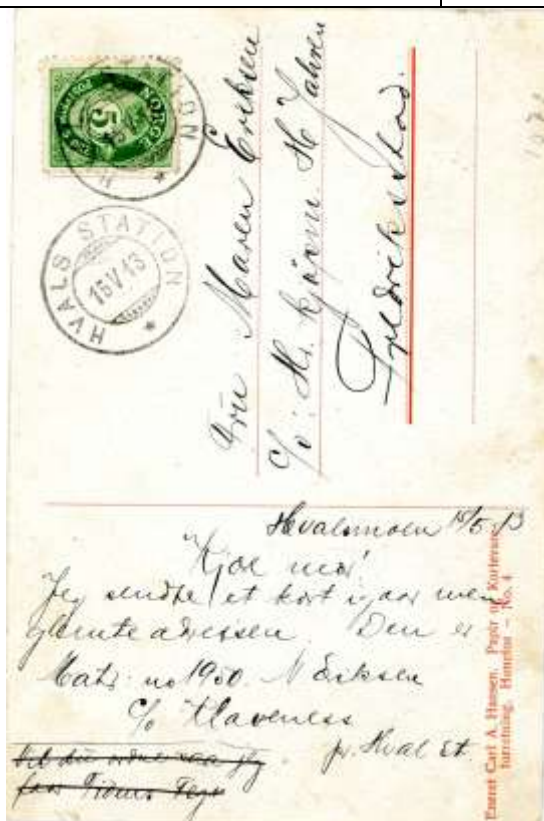 NORGE
5
HVALS STATION
15 V 13
Fru Maren Eriksen
c/o Hr. Kjøpm. H Jahren
Fredrikstad.
Hvalsmoen 15/5-13
Kjære mor!
Jeg sendte et kort igaar men
glemte adressen. Den er
Matr. no 1950. N Eriksen
c/o Klaveness
pr. Hval St.
Eneret Carl A. Hansen, Papir og Kortevare
forretning, Hønefos – No. 4